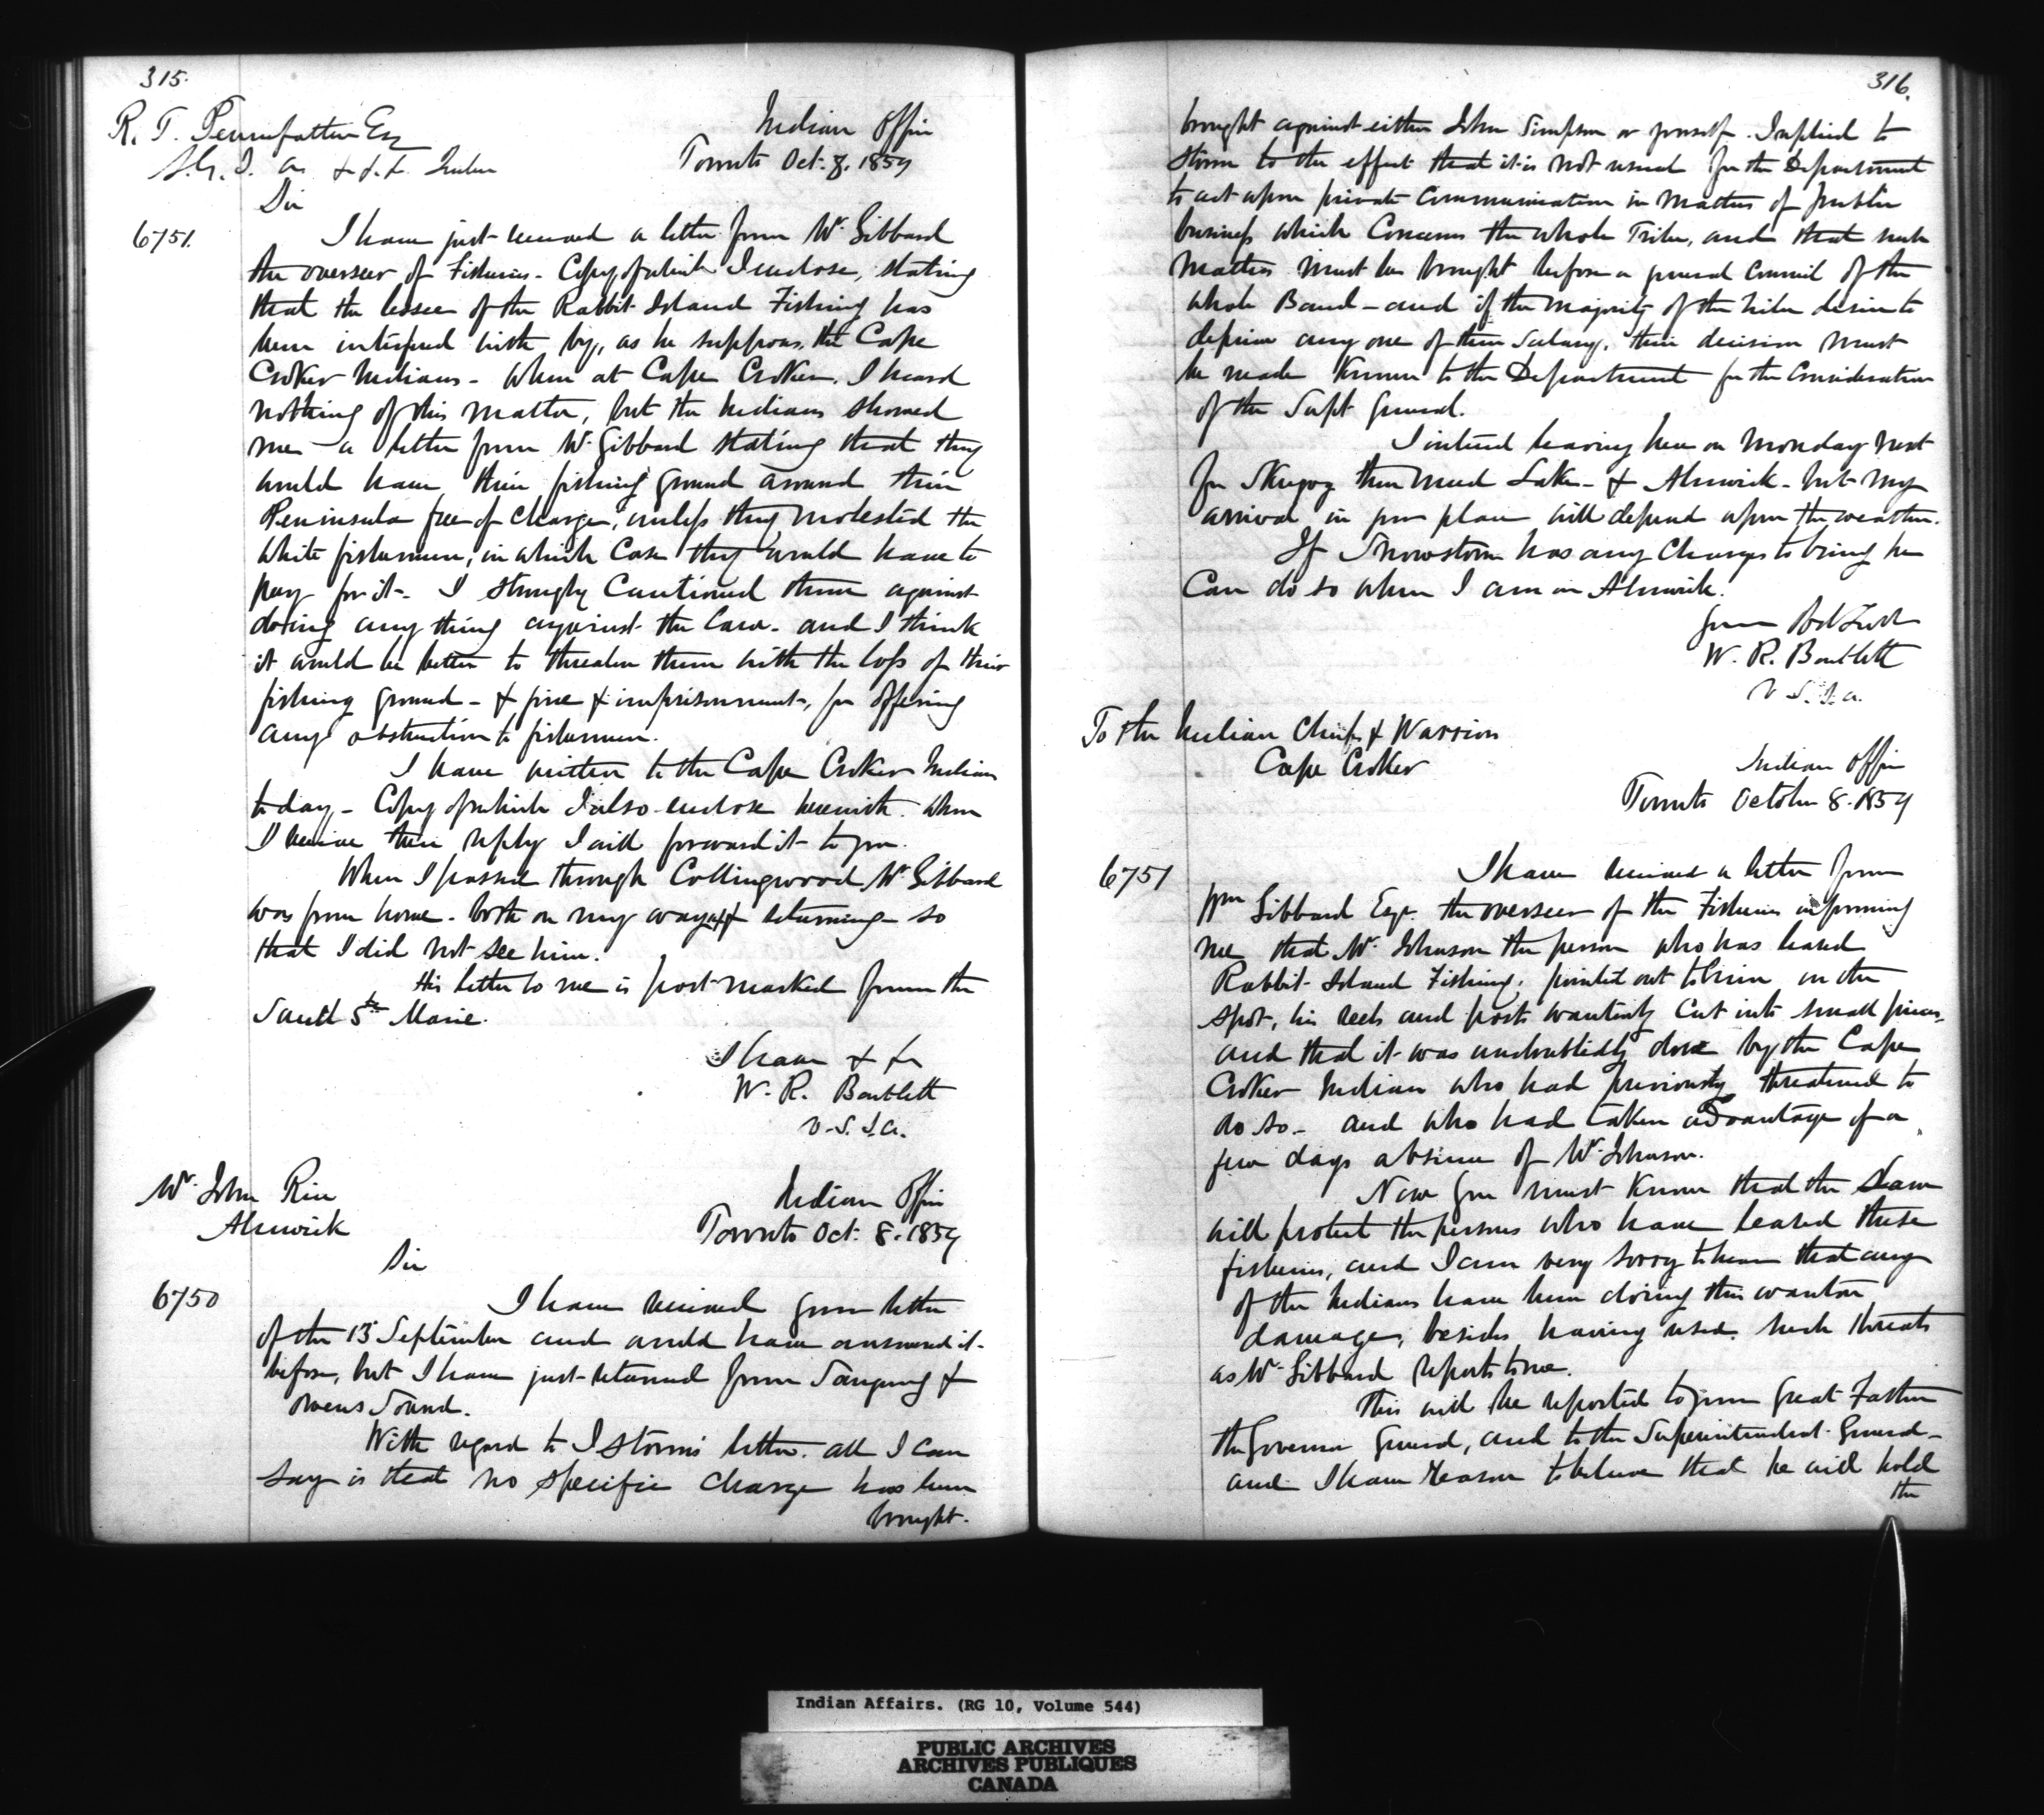 315.
R. T. Pennefather Esq
S. G. I. A. &c. &c. Quebec
Indian Office
Toronto Oct. 8. 1859
Sir
6751.
I have just received a letter from Mr Gibbard
the overseer of Fisheries - Copy of which I enclose, stating
that the lessee of the Rabbit Island Fishing has
been interfered with by, as he supposes, the Cape
Croker Indians - When at Cape Croker, I heard
nothing of this matter, but the Indians showed
me a letter from Mr Gibbard stating that they
would have their fishing ground around their
Peninsula free of charge, unless they molested the
white fishermen, in which case they would have to
pay for it - I strongly Cautioned them against
doing any thing against the Law - and I think
it would be better to threaten them with the loss of their
fishing ground - & fine & imprisonment, for offering
any obstruction to fishermen.
I have written to the Cape Croker Indians
to day - Copy of which I also enclose herewith. When
I receive their reply I will forward it to you.
When I passed through Collingwood Mr Gibbard
was from home - both on my way up & returning - so
that I did not see him.
His letter to me is post-marked from the
Sault Ste Marie.
I have &c
W. R. Bartlett
V. S. I. A.
Mr John Rice
Alnwick
Indian Office
Toronto Oct. 8. 1859
Sir
6750
I have received your letter
of the 13 September and would have answered it
before, but I have just returned from Saugeeng &
Owens Sound.
With regard to Storm's letter. all I can
say is that no specific charge has been
brought.
316.
brought against either John Simpson or yourself. I replied to
Storm to the effect that it is not usual for the Department
to act upon private communication in matters of public
business which Concerns the whole Tribe, and that such
matters must be brought before a general Council of the
whole Band - and if the majority of the tribe desire to
deprive any one of their Salary, their decision must
be made Known to the Department for the Consideration
of the Supt General.
I intend leaving here on Monday next
for Skugog then Mud Lake - & Alnwick - but my
arrival in your place will depend upon the weather.
If Snowstorm has any Charges to bring he
Can do so when I am in Alnwick.
Your Obt Servt
W. R. Bartlett
V. S. I. A.
To the Indian Chiefs & Warriors
Cape Croker
Indian Office
Toronto October 8. 1859
6751
I have received a letter from
Wm Gibbard Esqr. the overseer of the Fisheries informing
me that Mr Johnson the person who has leased
Rabbit Island Fishing, pointed out to him on the
spot, his reels and posts wantonly Cut into small pieces,
and that it was undoubtedly done by the Cape
Croker Indians who had previously threatened to
do so - and who had taken advantage of a
few days absence of Mr Johnson.
Now you must Know that the Law
will protect the persons who have leased these
fisheries, and I am very sorry to hear that any
of the Indians have been doing this wanton
damage, besides having used such threats
as Mr Gibbard reports to me.
This will be reported to your Great Father
the Governor General, and to the Superintendent General -
and I have reason to believe that he will hold
the
Indian Affairs. (RG 10, Volume 544)
PUBLIC ARCHIVES
ARCHIVES PUBLIQUES
CANADA